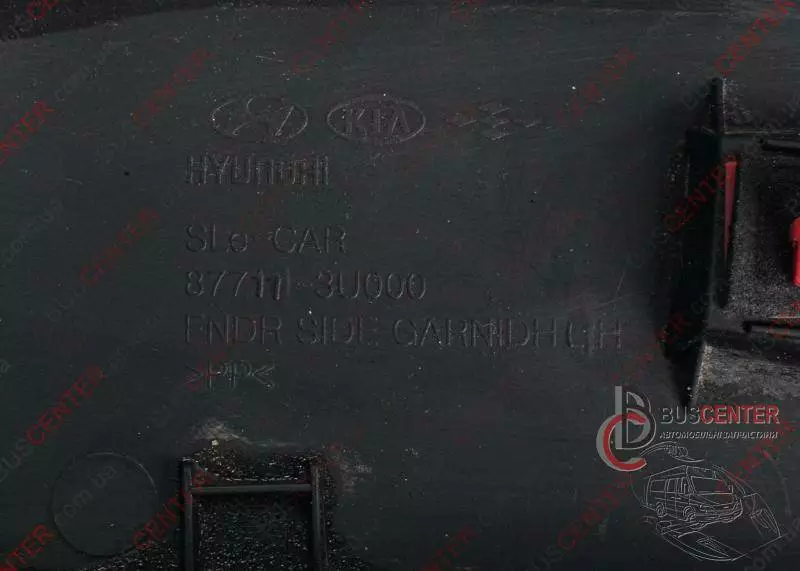 KIA
HYUNDAI
SLe CAR
87711-3U000
FNDR SIDE GARNIDH LH
>PP<
BUSCENTER
АВТОМОБІЛЬНІ ЗАПЧАСТИНИ
BUSCENTER.com.ua